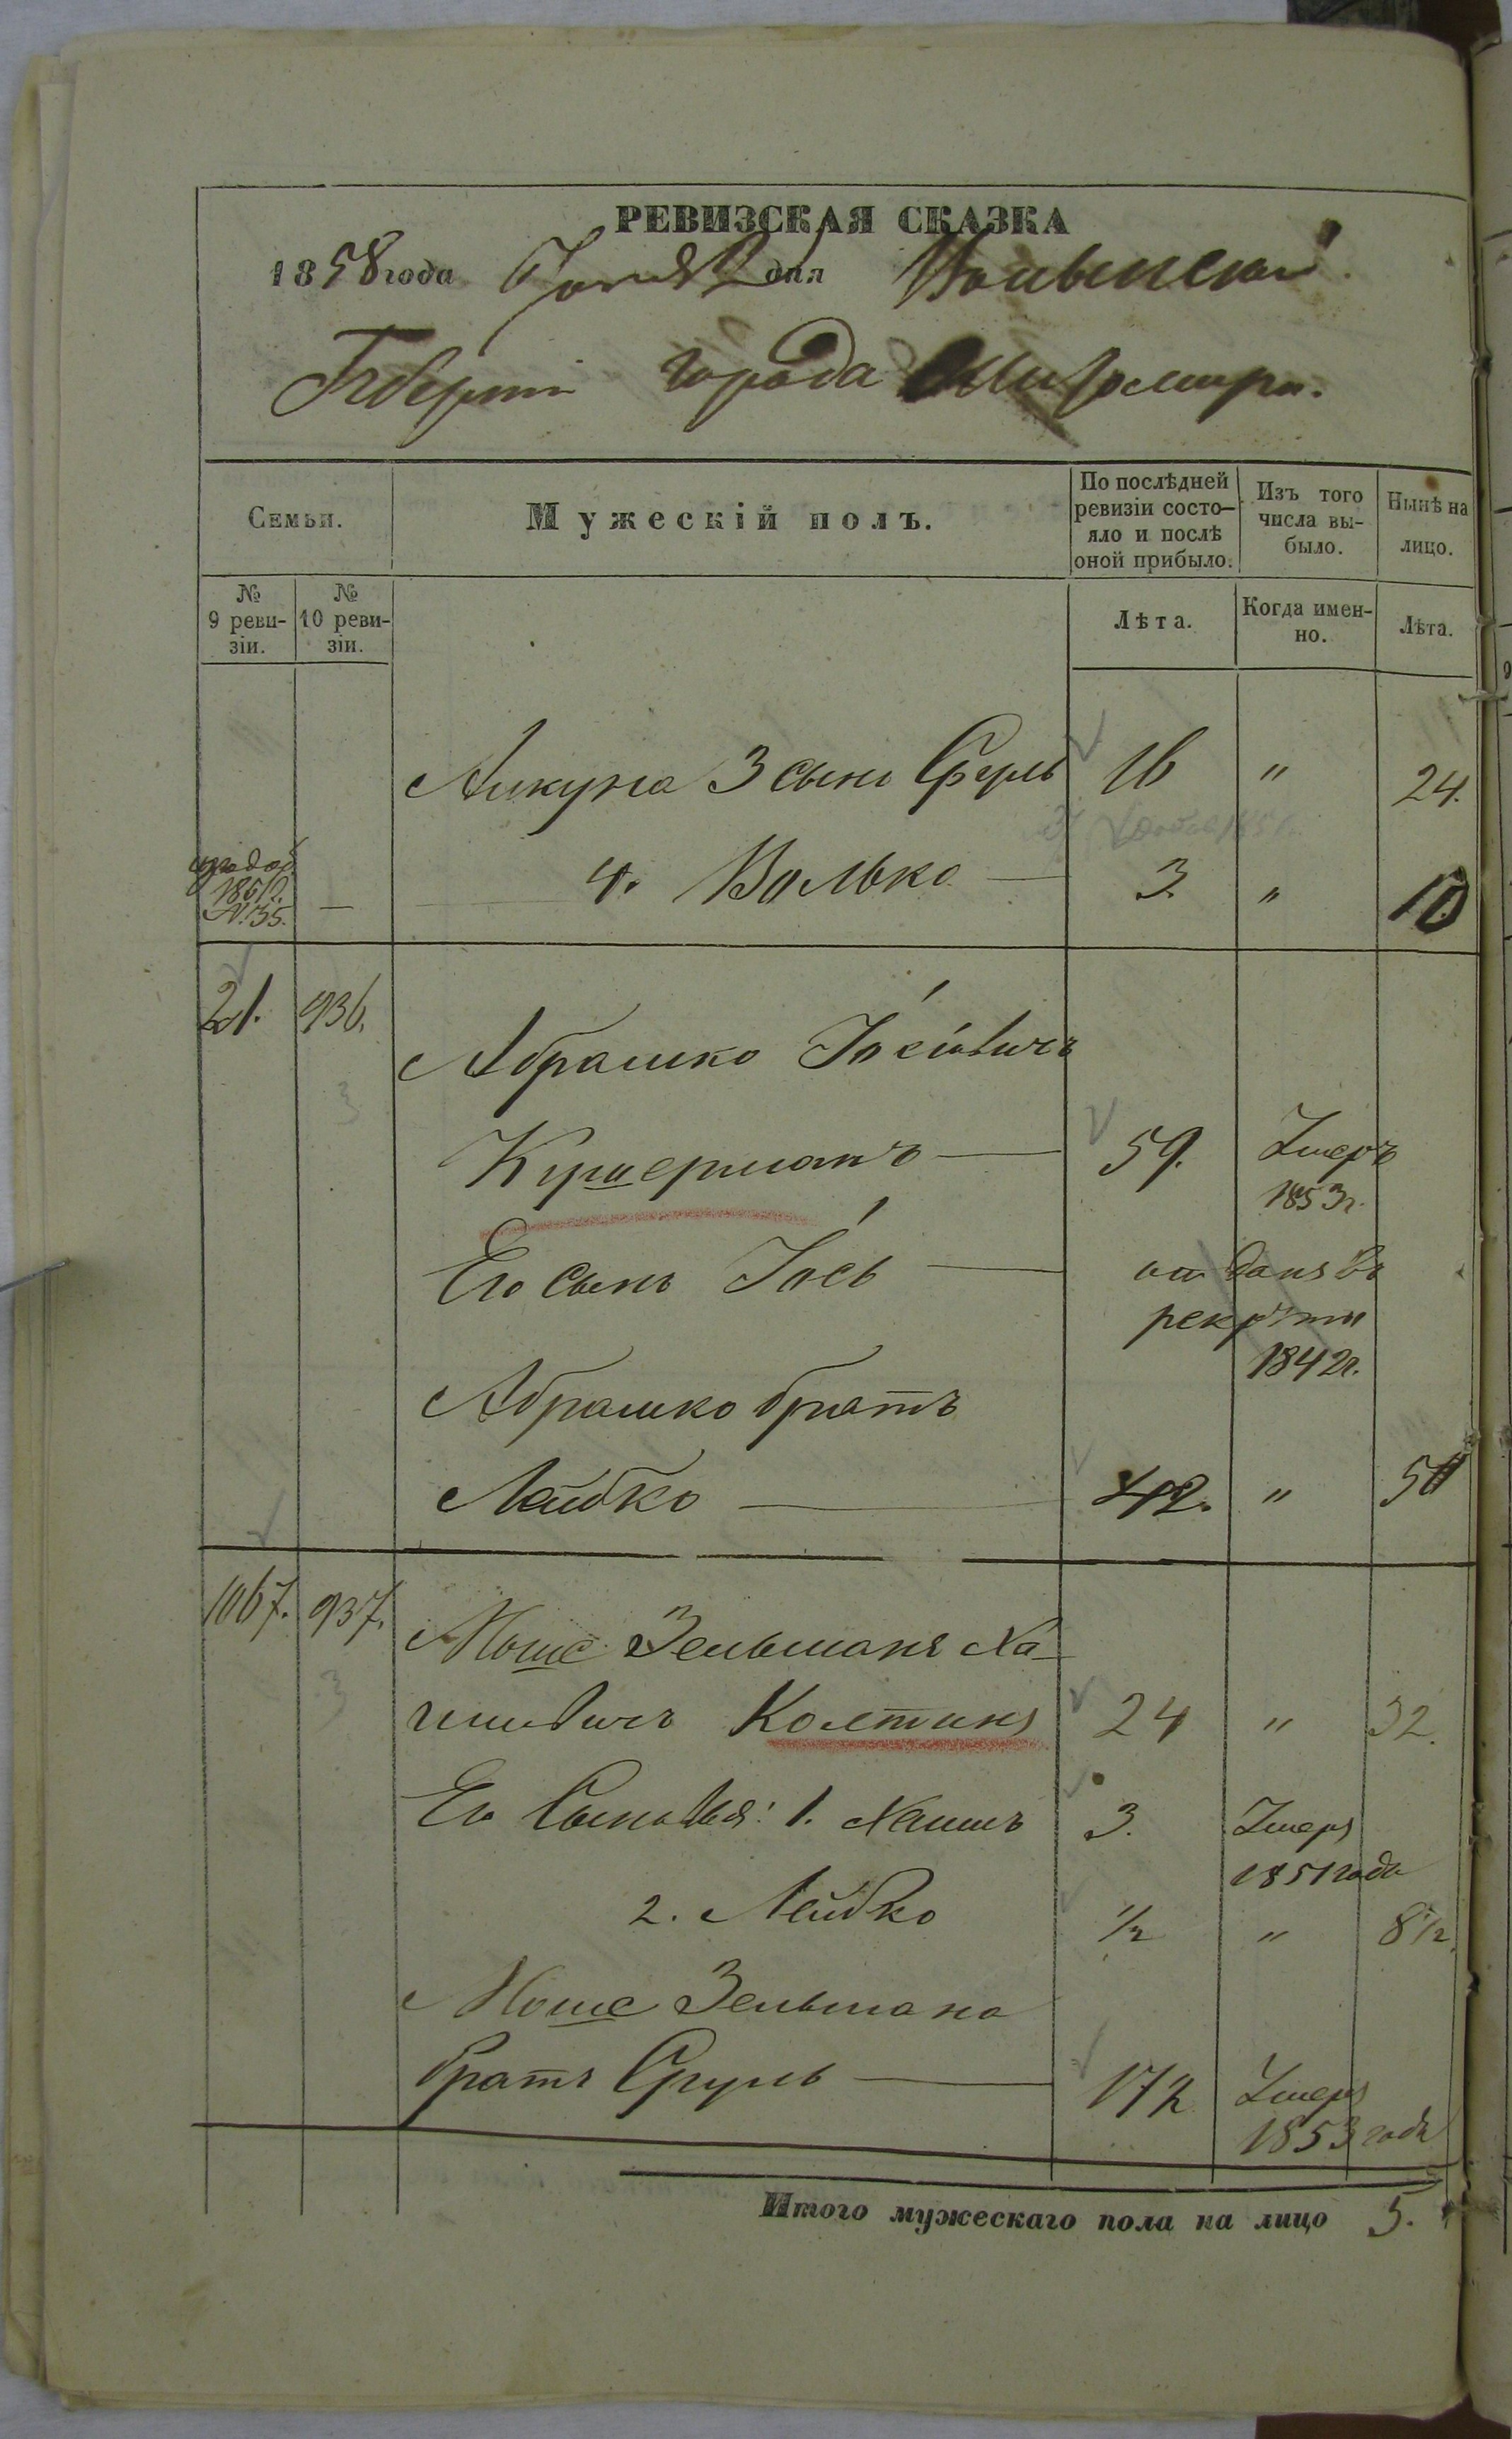 РЕВИЗСКАЯ СКАЗКА
1858 года дня Волынской
Губерніи города Житомира.
Семьи.
Мужескій полъ.
По послѣдней ревизіи состо-
яло и послѣ
оной прибыло.
Изъ того
числа вы-
было.
Нынѣ на
лицо.
№
9 реви-
зіи.
№
10 реви-
зіи.
Лѣта.
Когда имен-
но.
Лѣта.
3 сынъ Сруль 16 " 24.
4. Волько — 3. " 10
№ 35. —
21. 936.
Абрашко Іосіовичъ
Кушерманъ — 59. Умеръ
1853 г.
Его сынъ Іось — отданъ въ
рекруты
1842 г.
Абрашко братъ
Лейбко — 42. " 50
1067. 937.
Моше Зельманъ Ха-
имовичъ Колтинъ 24 " 32.
Его Сыновья: 1. Хаимъ 3. Умеръ
1851 года
2. Лейбко 1/2 " 8 1/2.
Моше Зельмана
братъ Сруль — 17 1/2 Умеръ
1853 года
Итого мужескаго пола на лицо 5.